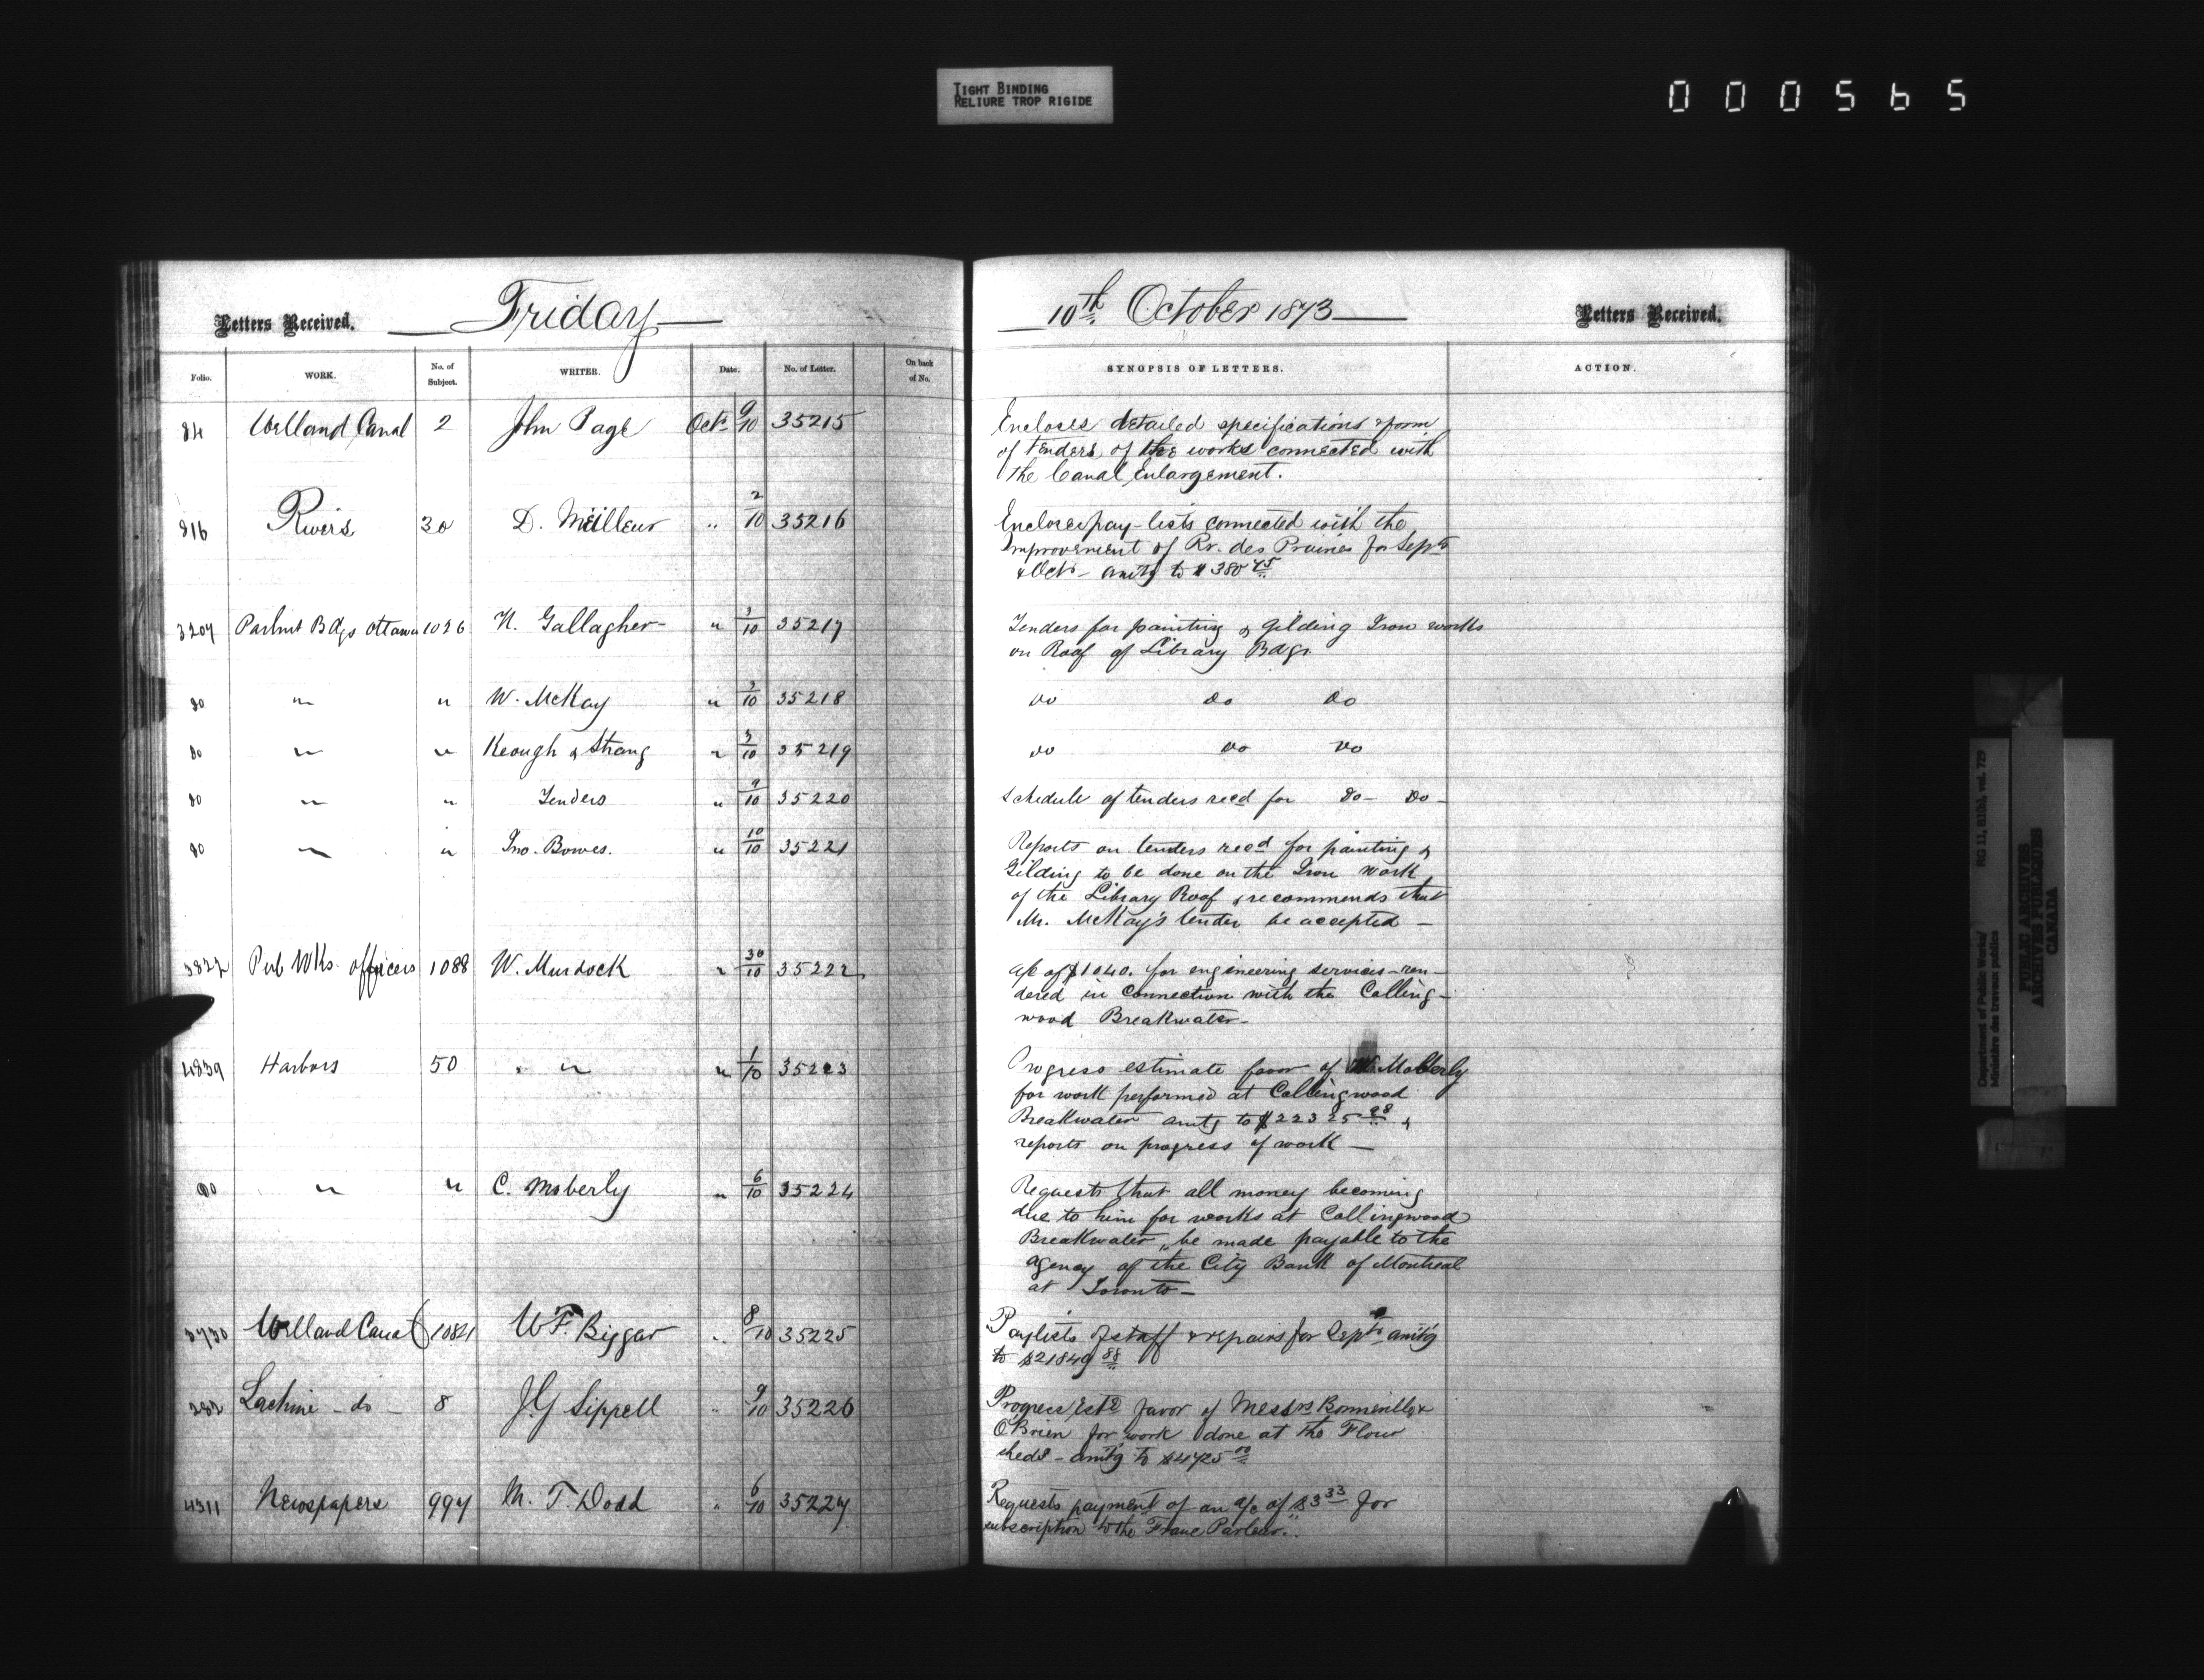 TIGHT BINDING
RELIURE TROP RIGIDE
000565
Letters Received.
Friday
10th October 1873
Letters Received.
Folio. WORK. No. of Subject. WRITER. Date. No. of Letter. On back of No. SYNOPSIS OF LETTERS. ACTION.
84 Welland Canal 2 John Page Oct. 9/10 35215 Encloses detailed specifications & form
of tenders of the works connected with
the Canal Enlargement.
816 Rivers 30 D. Meilleur " 2/10 35216 Encloses pay-lists connected with the
Improvement of Rv. des Prairies for Septr
& Octr - amtg to $380 45
3207 Parlmt Bdgs Ottawa 1026 N. Gallagher " 3/10 35217 Tenders for painting & gilding Iron works
on Roof of Library Bdgs.
do " " W. McKay " 3/10 35218 do do do
do " " Keough & Strang " 3/10 35219 do do do
do " " Tenders " 9/10 35220 Schedule of tenders recd for do - do -
do " " Jno. Bowes. " 10/10 35221 Reports on tenders recd for painting &
Gilding to be done on the Iron work
of the Library Roof & recommends that
Mr. McKay's tender be accepted -
3822 Pub Wks. officers 1088 W. Murdock " 30/10 35222 a/c of $1040. for engineering services - ren-
dered in connection with the Colling-
wood Breakwater -
4839 Harbors 50 " " " 1/10 35223 Progress estimate favor of W. Moberly
for work performed at Collingwood
Breakwater amtg to $22325 98 &
reports on progress of work -
do " " C. Moberly " 6/10 35224 Requests that all money becoming
due to him for works at Collingwood
Breakwater, be made payable to the
agency of the City Bank of Montreal
at Toronto -
3730 Welland Canal 1082 1/2 W F. Biggar " 8/10 35225 Paylists of staff & repairs for Septr amtg
to $21849 88
282 Lachine - do - 8 J.G Sippell " 9/10 35226 Progress Este favor of Messrs Bonneville &
O'Brien for work done at the Flour
sheds - amtg to $4725 00
4311 Newspapers 997 M. T. Dodd " 6/10 35227 Requests payment of an a/c of $3 33 for
subscription to the Franc Parleur.
Department of Public Works/
Ministère des travaux publics
RG 11, B1(b), vol. 729
PUBLIC ARCHIVES
ARCHIVES PUBLIQUES
CANADA